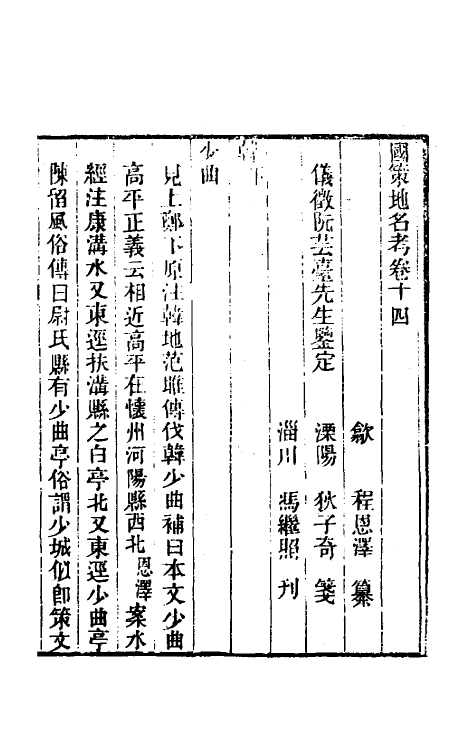 國策地名考卷十四
歙　程恩澤　纂
儀徵阮芸臺先生鑒定
溧陽　狄子奇　箋
淄川　馮繼照　刊
韓下
少曲
見上鄭下原注韓地范雎傳伐韓少曲補曰本文少曲
高平正義云相近高平在懷州河陽縣西北恩澤案水
經注康溝水又東逕扶溝縣之白亭北又東逕少曲亭
陳留風俗傳曰尉氏縣有少曲亭俗謂少城似卽策文